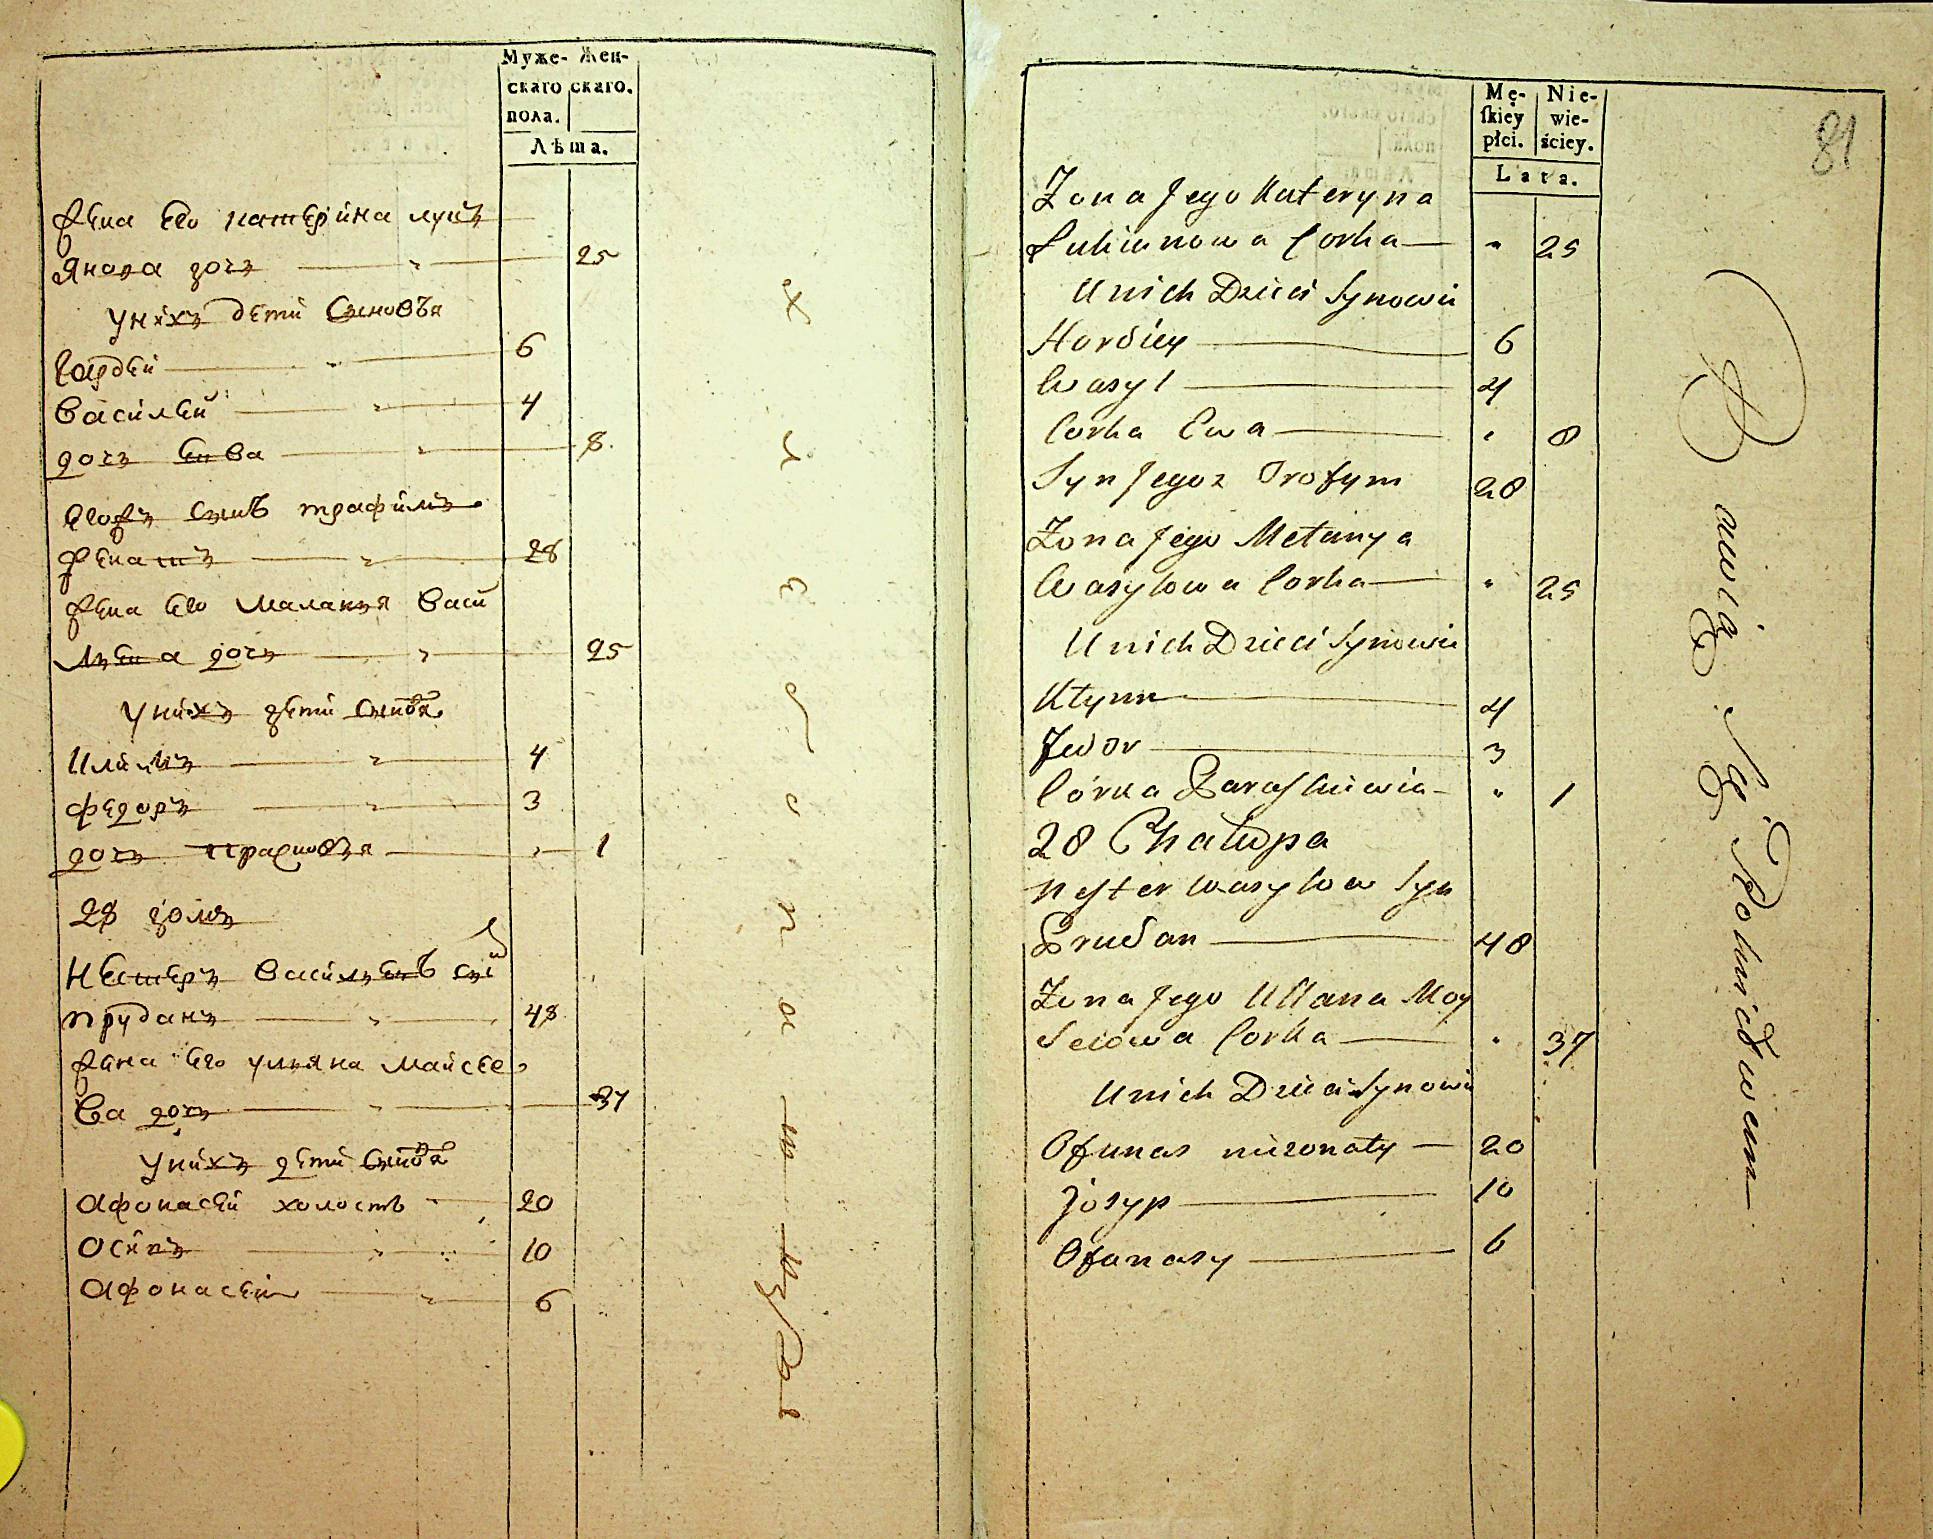 Муже- Жен-
скаго скаго.
пола.
Лѣта.
жена его катерина лукъ
янова дочь " 25
у нихъ дети сыновья
Гордей " 6
Василей " 4
дочь Ева " 8
Егожъ сынъ трафимъ
женатъ " 28
жена его маланья Васи
льева дочь " 25
у нихъ дети сыновья
Климъ " 4
Федоръ " 3
дочь Прасковья " 1
28 домъ
Нестеръ Васильевъ сынъ
пруданъ " 48
жена его ульяна майсее
ва дочь " 37
у нихъ дети сыновья
Афонасей холостъ " 20
Осипъ " 10
Афонасей " 6
хлебопашцы
81
Mę- Nie-
ſkiey wie-
płci. ściey.
Lata.
Zona Jego Kateryna
Lukianowa Corka " 25
U nich Dzieci Synowie
Hordiey 6
Wasyl 4
Corka Ewa " 8
Syn Jegoz Trofym 28
Zona Jego Melanya
Wasylowa Corka " 25
U nich Dzieci Synowie
Klym 4
Fedor 3
Córka Paraskiewia " 1
28 Chałupa
Nester Wasylow Syn
Prudan 48
Zona Jego Ullana Moy
Seiowa Corka " 37
U nich Dzieci Synowie
Ofanas niezonaty 20
Josyp 10
Ofanasy 6
Bawią Się Rolnictwem